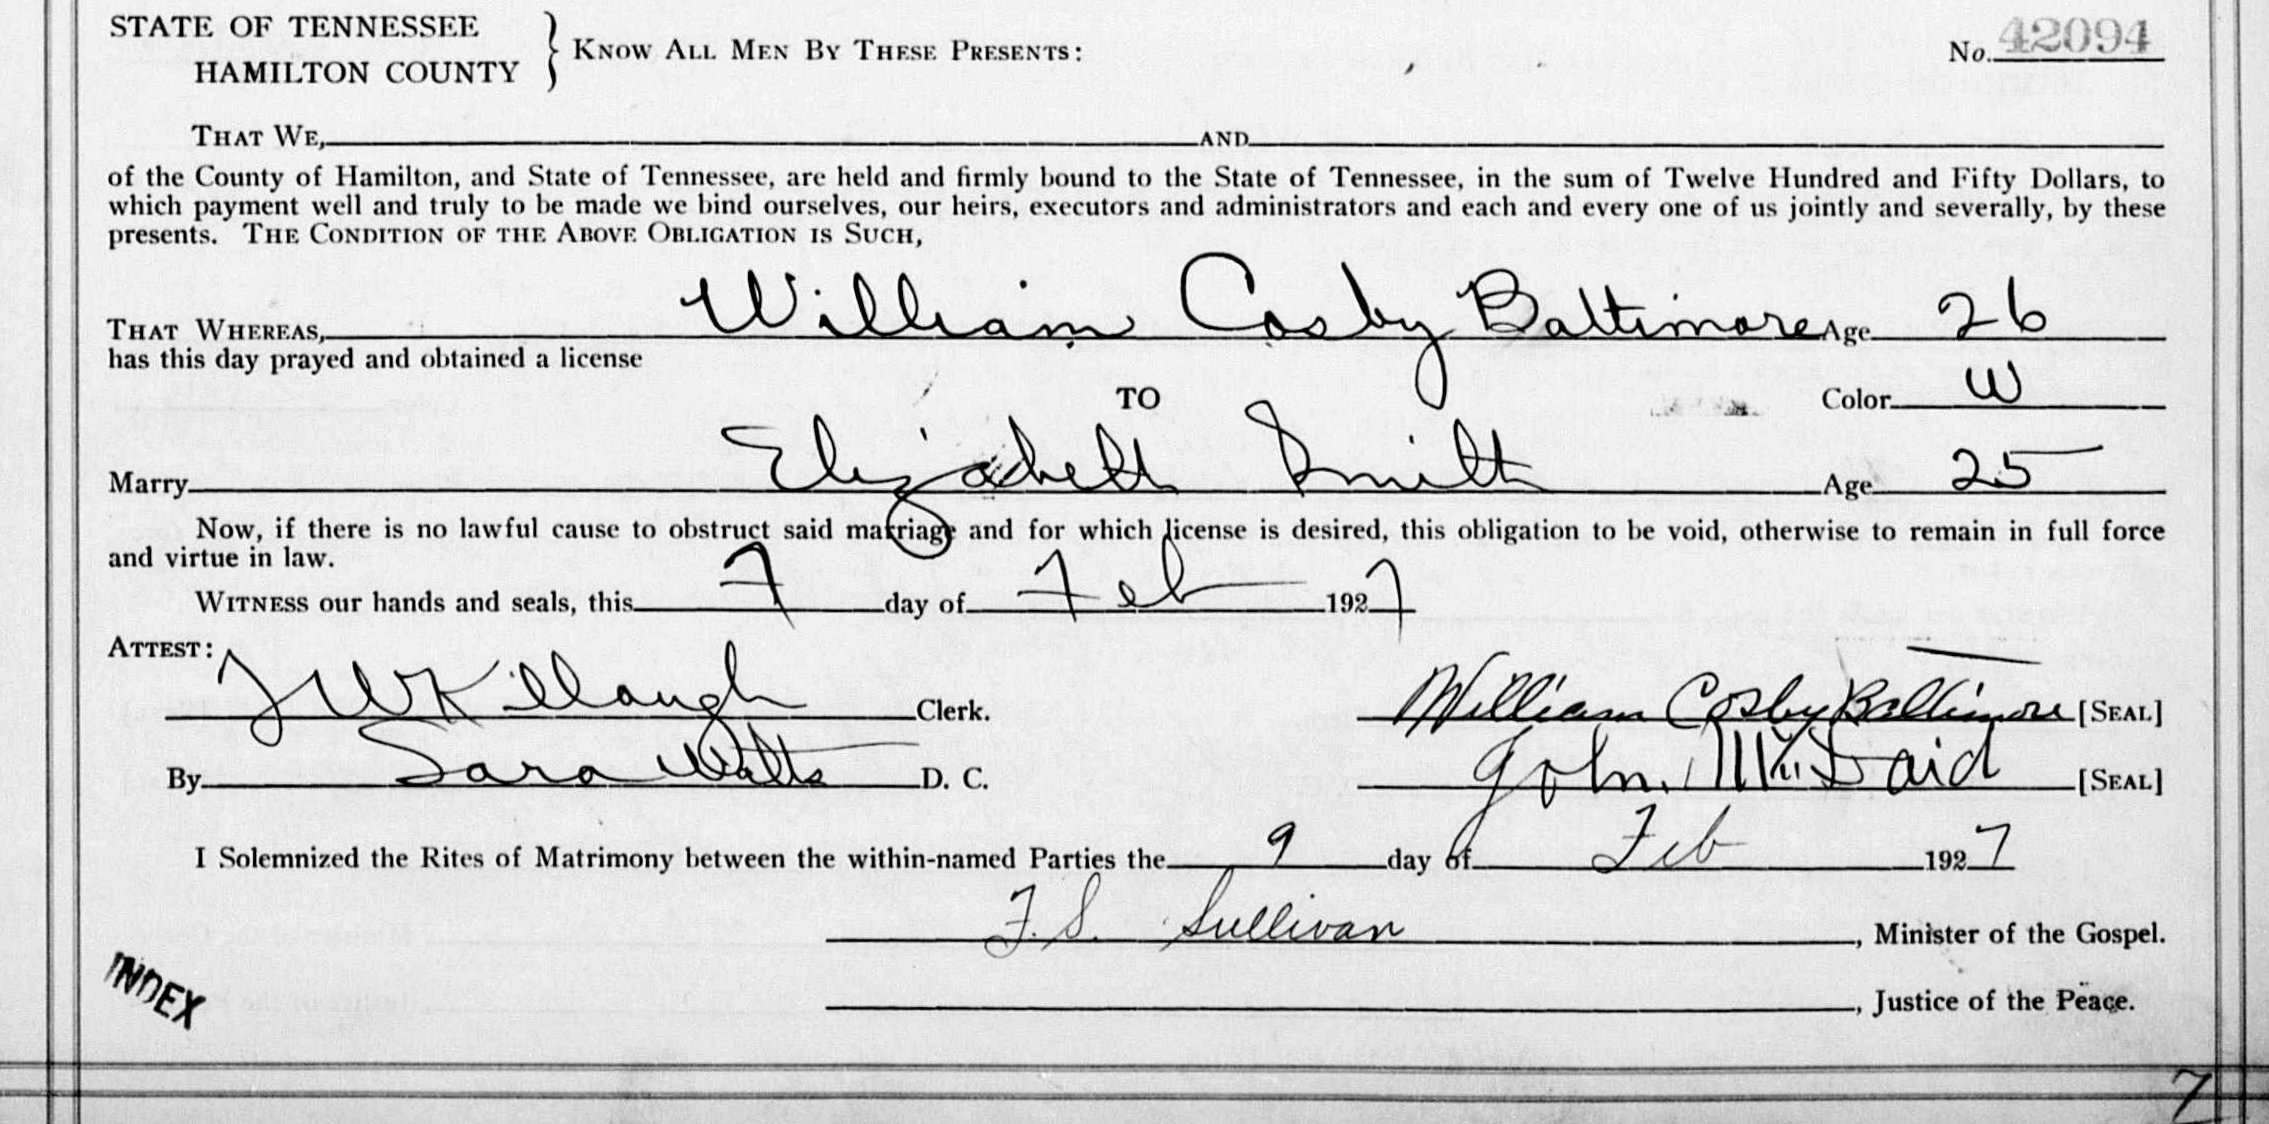 STATE OF TENNESSEE
HAMILTON COUNTY } KNOW ALL MEN BY THESE PRESENTS: No. 42094
THAT WE, AND
of the County of Hamilton, and State of Tennessee, are held and firmly bound to the State of Tennessee, in the sum of Twelve Hundred and Fifty Dollars, to
which payment well and truly to be made we bind ourselves, our heirs, executors and administrators and each and every one of us jointly and severally, by these
presents. THE CONDITION OF THE ABOVE OBLIGATION IS SUCH,
THAT WHEREAS, William Cosby Baltimore Age 26
has this day prayed and obtained a license
TO Color W
Marry Elizabeth Smith Age 25
Now, if there is no lawful cause to obstruct said marriage and for which license is desired, this obligation to be void, otherwise to remain in full force
and virtue in law.
WITNESS our hands and seals, this 7 day of Feb 1927
ATTEST:
J W Killough Clerk. William Cosby Baltimore [SEAL]
By Sara Watts D. C. John McDaid [SEAL]
I Solemnized the Rites of Matrimony between the within-named Parties the 9 day of Feb 1927
F. S. Sullivan, Minister of the Gospel.
INDEX
, Justice of the Peace.
7